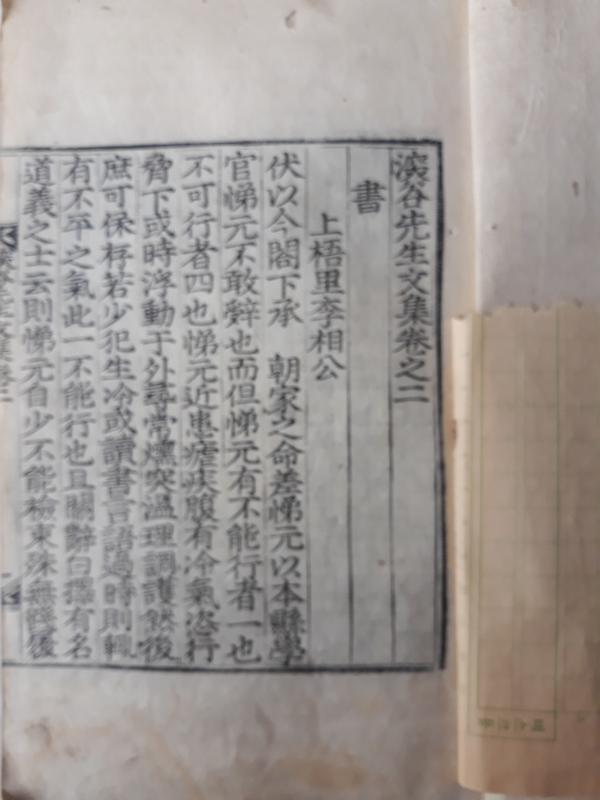 谷先生文集卷之二
書
上梧里李相公
伏以今閤下承 朝家之命差悌元以本縣學
官悌元不敢辤也而但悌元有不能行者一也
不可行者四也悌元近患瘧疾腹有冷氣恣行
脅下或時浮動于外尋常燻突溫理調護然後
庶可保存若少犯生冷或讀書言語過時則輒
有不平之氣此一不能行也且關辭曰擇有名
道義之士云則悌元自少不能檢束殊無踐履